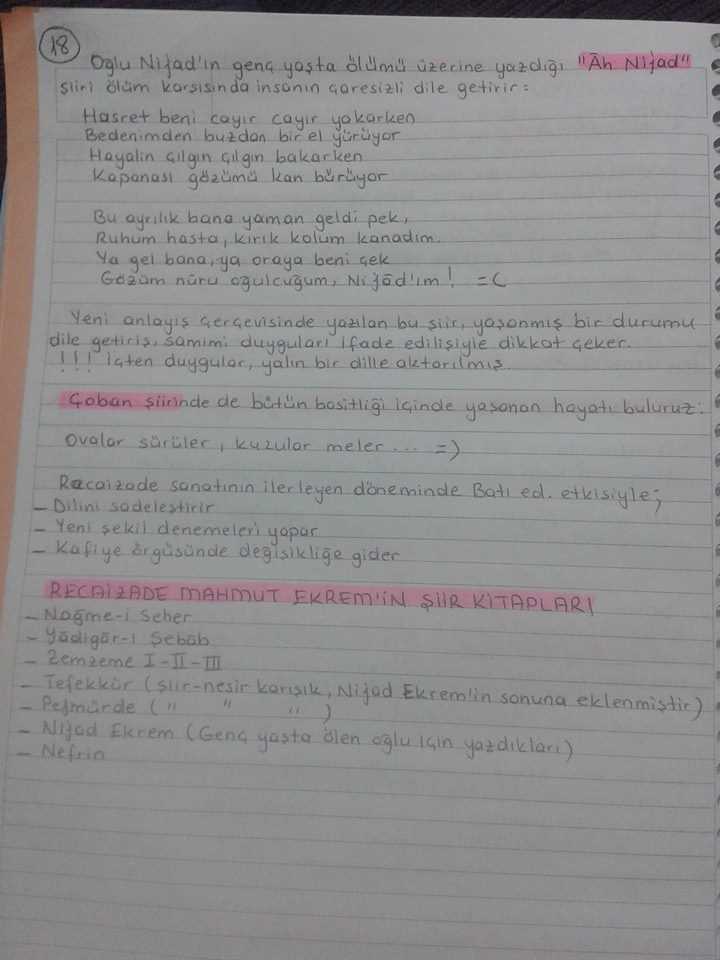 18
Oğlu Nijad'ın genç yaşta ölümü üzerine yazdığı "Âh Nijad"
şiiri ölüm karşısında insanın çaresizli dile getirir:
Hasret beni cayır cayır yakarken
Bedenimden buzdan bir el yürüyor
Hayalin çılgın çılgın bakarken
Kapanası gözümü kan bürüyor
Bu ayrılık bana yaman geldi pek,
Ruhum hasta, kırık kolum kanadım.
Ya gel bana, ya oraya beni çek
Gözüm nûru oğulcuğum, Nijâd'ım! =(
Yeni anlayış çerçevisinde yazılan bu şiir, yaşanmış bir durumu
dile getiriş, samimi duyguları ifade edilişiyle dikkat çeker.
!!! İçten duygular, yalın bir dille aktarılmış.
Çoban şiirinde de bütün basitliği içinde yaşanan hayatı buluruz:
Ovalar sürüler, kuzular meler... =)
Recaizade sanatının ilerleyen döneminde Batı ed. etkisiyle;
- Dilini sadeleştirir
- Yeni şekil denemeleri yapar
- Kafiye örgüsünde değişikliğe gider
RECAİZADE MAHMUT EKREM'İN ŞİİR KİTAPLARI
- Nağme-i Seher
- Yâdigâr-ı Şebâb
- Zemzeme I-II-III
- Tefekkür (şiir-nesir karışık, Nijad Ekrem'in sonuna eklenmiştir)
- Pejmürde (" " ")
- Nijad Ekrem (Genç yaşta ölen oğlu için yazdıkları)
- Nefrin